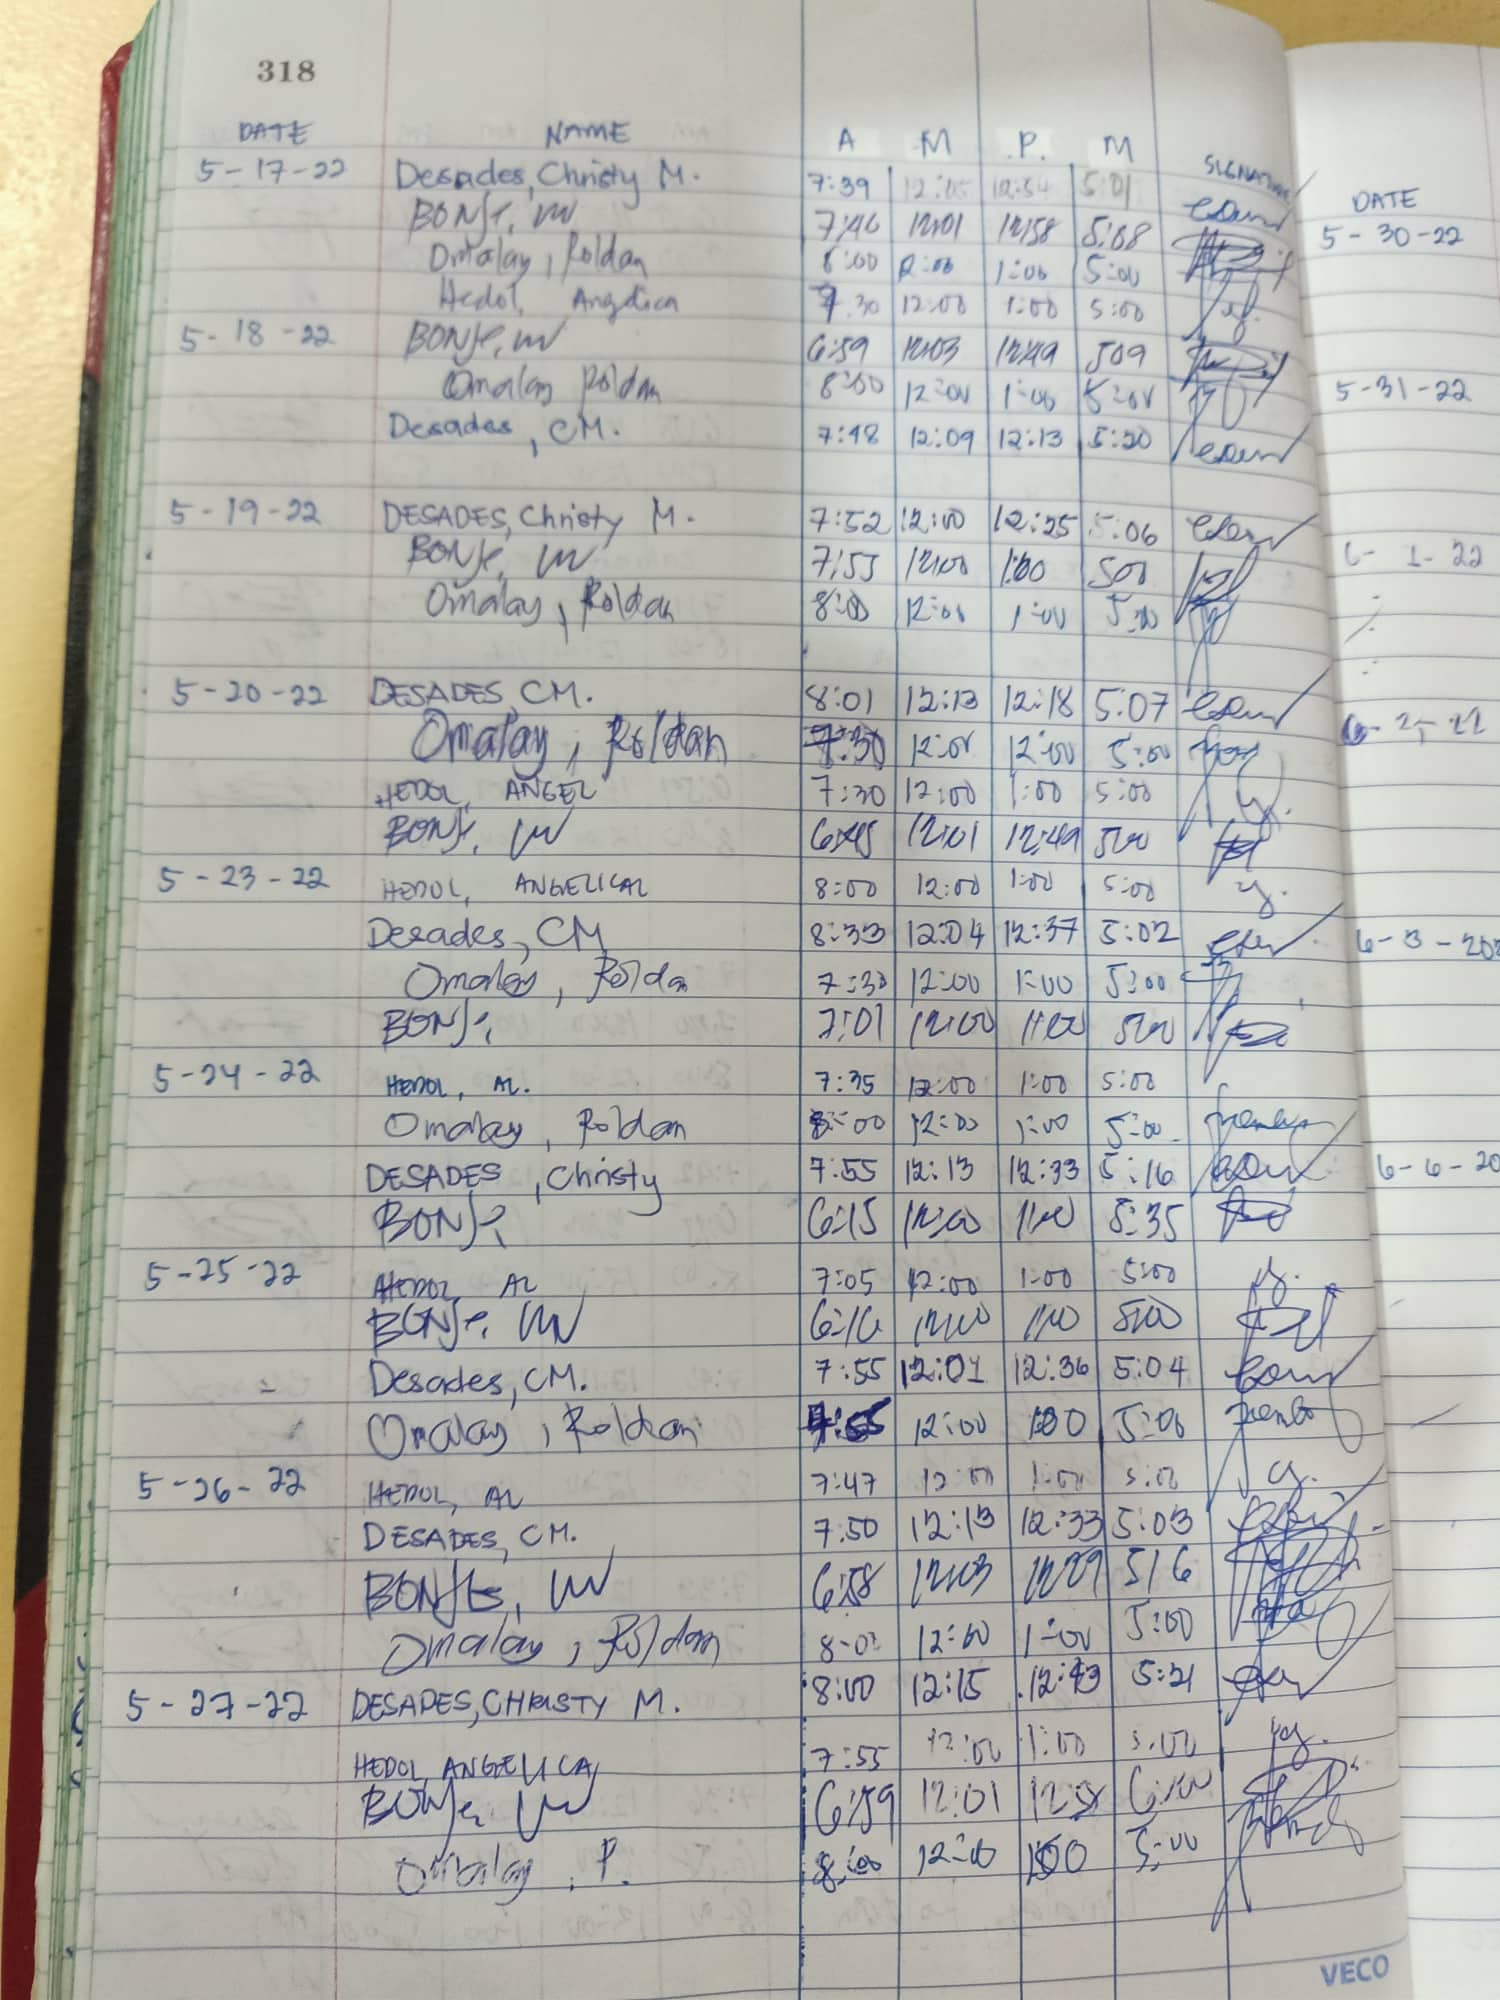 318
DATE NAME A M P. M SIGNATURE
5-17-22 Desades, Christy M. 7:39 12:05 12:54 5:01
7:46 12:01 12:58 5:08
Omalay, Roldan 8:00 12:00 1:00 5:00
Hedol, Angelica 7:30 12:00 1:00 5:00
5-18-22 6:59 12:03 12:49 509
Omalay Roldan 8:00 12:00 1:00 5:00
Desades, CM. 7:48 12:09 12:13 5:20
5-19-22 DESADES, Christy M. 7:52 12:00 12:25 5:06
7:53 12:00 1:00 500
Omalay, Roldan 8:00 12:00 1:00 5:00
5-20-22 DESADES, CM. 8:01 12:13 12:18 5:07
Omalay, Roldan 7:30 12:00 12:00 5:00
HEDOL, ANGEL 7:30 12:00 1:00 5:00
6:45 12:01 12:49 5:00
5-23-22 HEDOL, ANGELICAL 8:00 12:00 1:00 5:00
Desades, CM 8:33 12:04 12:37 5:02
Omalay, Roldan 7:30 12:00 1:00 5:00
7:01 12:00 1:00 5:00
5-24-22 HEDOL, AL. 7:35 12:00 1:00 5:00
Omalay, Roldan 8:00 12:00 1:00 5:00
DESADES, Christy 7:55 12:13 12:33 5:16
6:15 12:00 1:00 5:35
5-25-22 HEDOL, AL 7:05 12:00 1:00 5:00
6:16 12:00 1:00 5:00
Desades, CM. 7:55 12:01 12:36 5:04
Omalay, Roldan 12:00 1:00 5:00
5-26-22 HEDOL, AL 7:47 12:00 1:00 5:00
DESADES, CM. 7:50 12:13 12:33 5:03
6:58 12:03 12:29 516
Omalay, Roldan 8:00 12:00 1:00 5:00
5-27-22 DESADES, CHRISTY M. 8:00 12:15 12:43 5:21
HEDOL ANGELICA 7:55 12:00 1:00 5:00
6:59 12:01 6:00
Omalay, R. 8:00 12:00 1:00 5:00
VECO
DATE
5-30-22
5-31-22
6-1-22
6-2-22
6-3-202
6-6-20